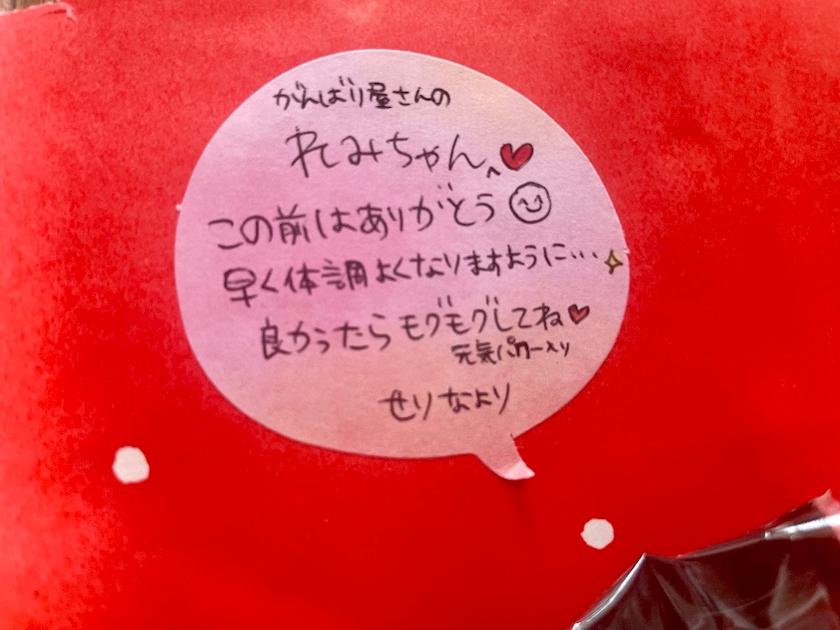 がんばり屋さんの
れみちゃん、❤
この前はありがとう
早く体調よくなりますように…
良かったらモグモグしてね❤
元気パワー入り
せりなより